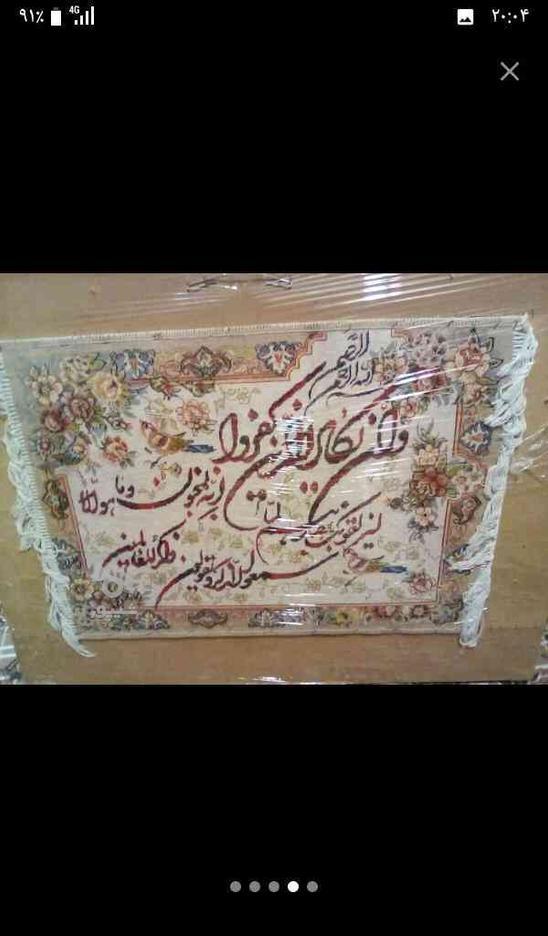 ۹۱٪ 4G ۲۰:۰۴
بسم الله الرحمن الرحیم
وان یکاد الذین کفروا
لیزلقونک بابصارهم لما
سمعوا الذکر و یقولون
انه لمجنون وما هو الا
ذکر للعالمین